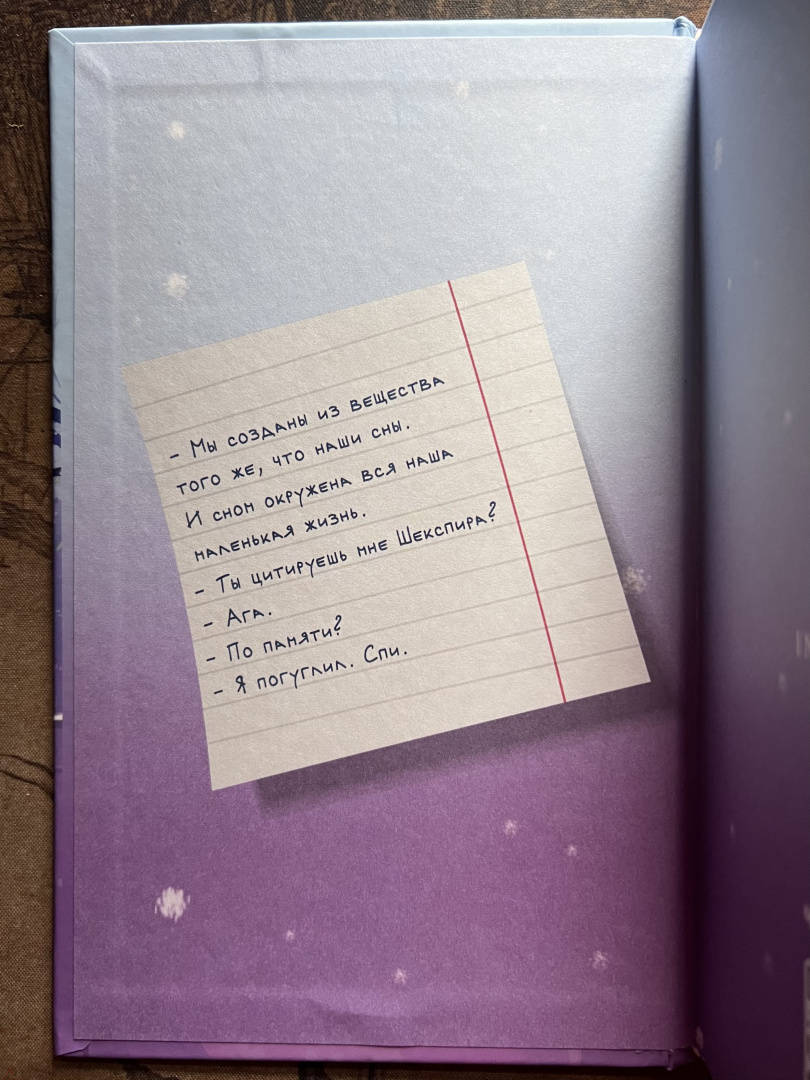 - Мы созданы из вещества
того же, что наши сны.
И сном окружена вся наша
маленькая жизнь.
- Ты цитируешь мне Шекспира?
- Ага.
- По памяти?
- Я погуглил. Спи.